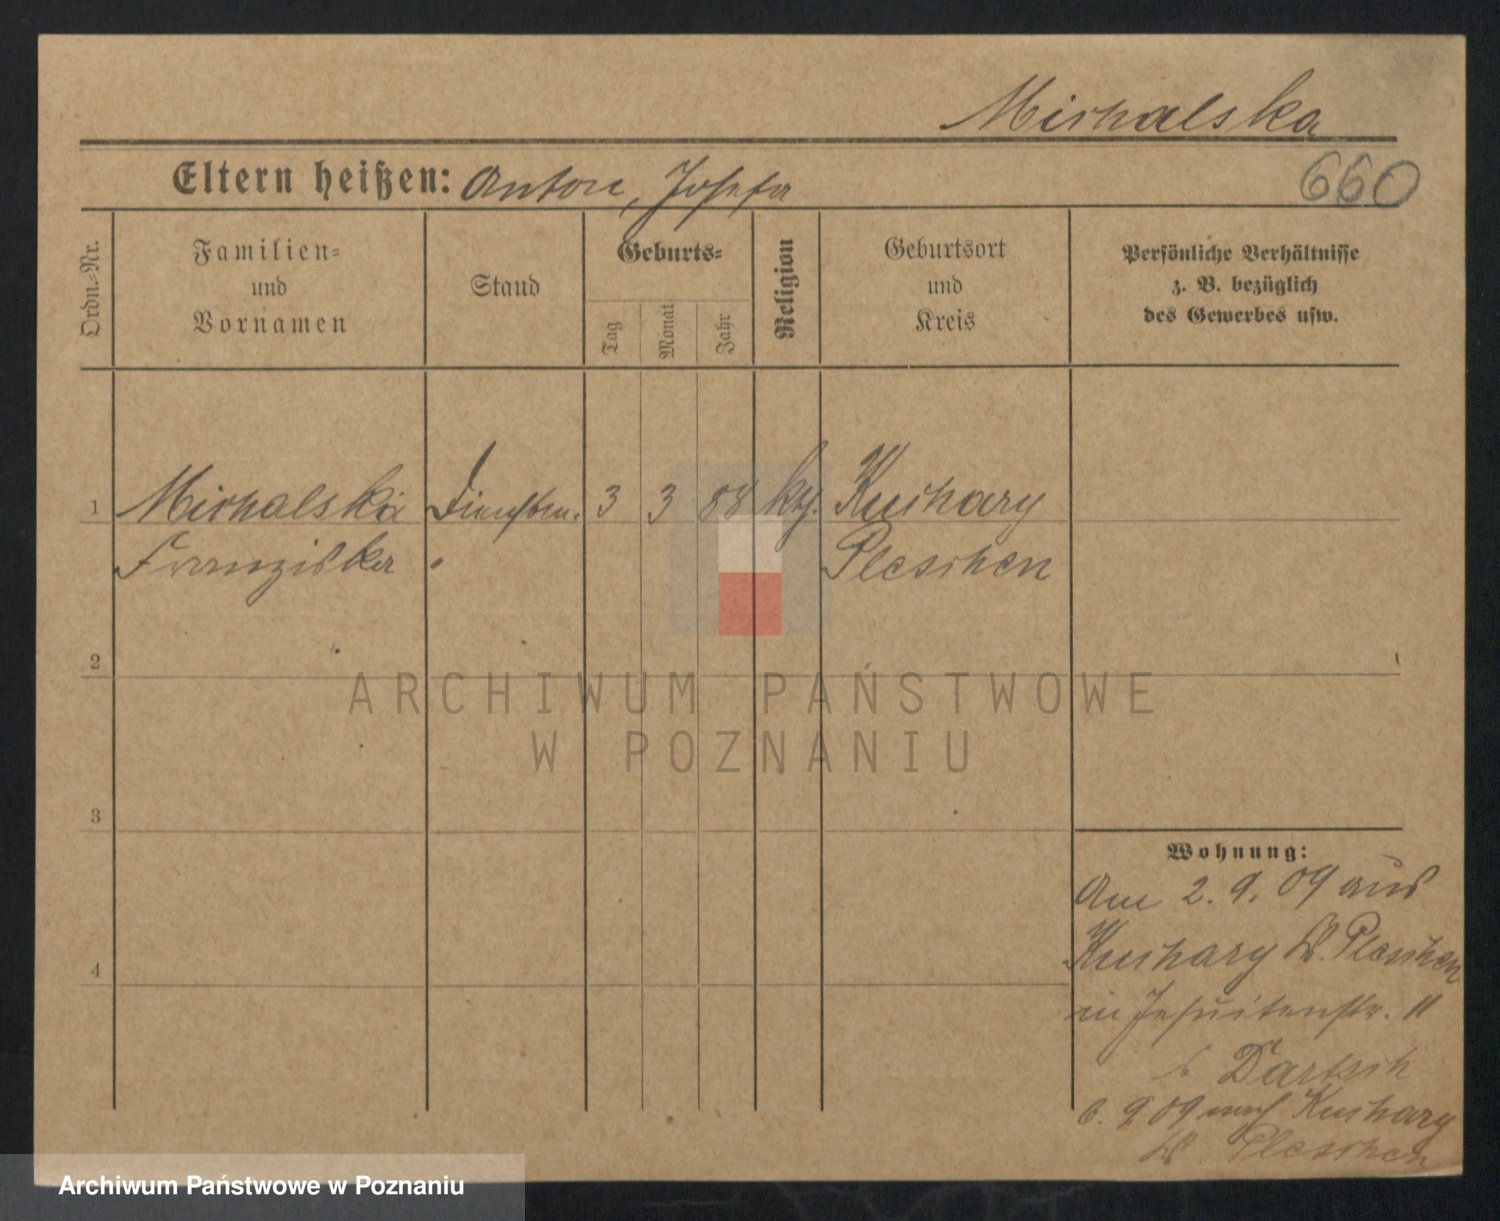 Michalska
660
Eltern heißen: Anton, Josefa
Ordn.-Nr.
Familien-
und
Vornamen
Stand
Geburts-
Tag
Monat
Jahr
Religion
Geburtsort
und
Kreis
Persönliche Verhältnisse
z. B. bezüglich
des Gewerbes usw.
1 Michalska Dienstm. 3 3 88 kth. Kuchary
Franziska Pleschen
2
3
4
Wohnung:
Am 2. 9. 09 aus
Kuchary Kr. Pleschen
in Jesuitenstr. 11
b Bartsch
6. 9 09 nach Kuchary
Kr. Pleschen
ARCHIWUM PAŃSTWOWE
W POZNANIU
Archiwum Państwowe w Poznaniu